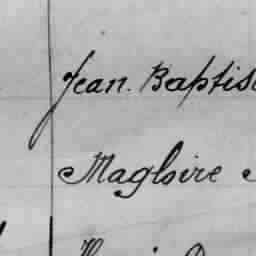 Jean. Baptis
Magloire